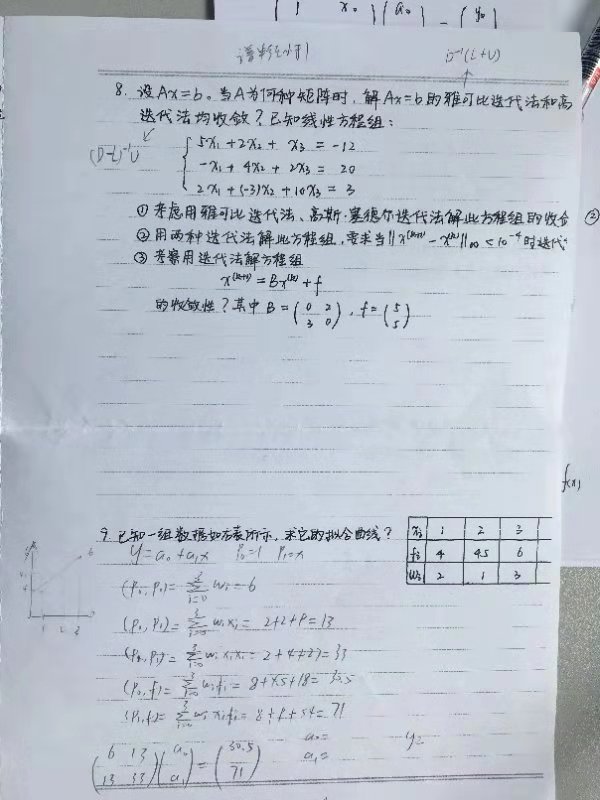 1 x₀ a₀ = y₀
D⁻¹(L+U)
8. 设Ax=b。当A为何种矩阵时，解Ax=b的雅可比迭代法和高
迭代法均收敛？已知线性方程组：
(D-L)⁻¹U
5x₁+2x₂+ x₃ = -12
-x₁+4x₂+2x₃ = 20
2x₁+(-3)x₂+10x₃ = 3
① 考虑用雅可比迭代法、高斯·塞德尔迭代法解此方程组的收敛
②
② 用两种迭代法解此方程组，要求当‖x^(k+1) - x^(k)‖∞ < 10⁻⁴时迭代
③ 考察用迭代法解方程组
x^(k+1) = Bx^(k) + f
的收敛性？其中B=(0 2
3 0), f=(5
5)
f(x)
9. 已知一组数据如右表所示，求它的拟合曲线？
xᵢ 1 2 3
fᵢ 4 4.5 6
Wᵢ 2 1 3
y=a₀+a₁x P₀=1 P₁=x
Σ wᵢ = 6
Σ wᵢxᵢ = 2+2+9=13
Σ wᵢxᵢxᵢ = 2+4+27=33
(P₀,f)= Σ wᵢfᵢ = 8+4.5+18=30.5
(P₁,f)= Σ wᵢxᵢfᵢ = 8+9+54=71
(6 13
13 33)(a₀
a₁) = (30.5
71)
a₀=
a₁=
y=